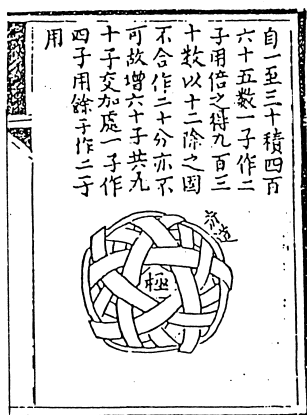 自一至三十積四百
六十五數一子作二
子用倍之得九百三
十數以十二除之因
不合作二十分亦不
可故增六十子共九
十子交加處一子作
四子用餘子作二子
用
極